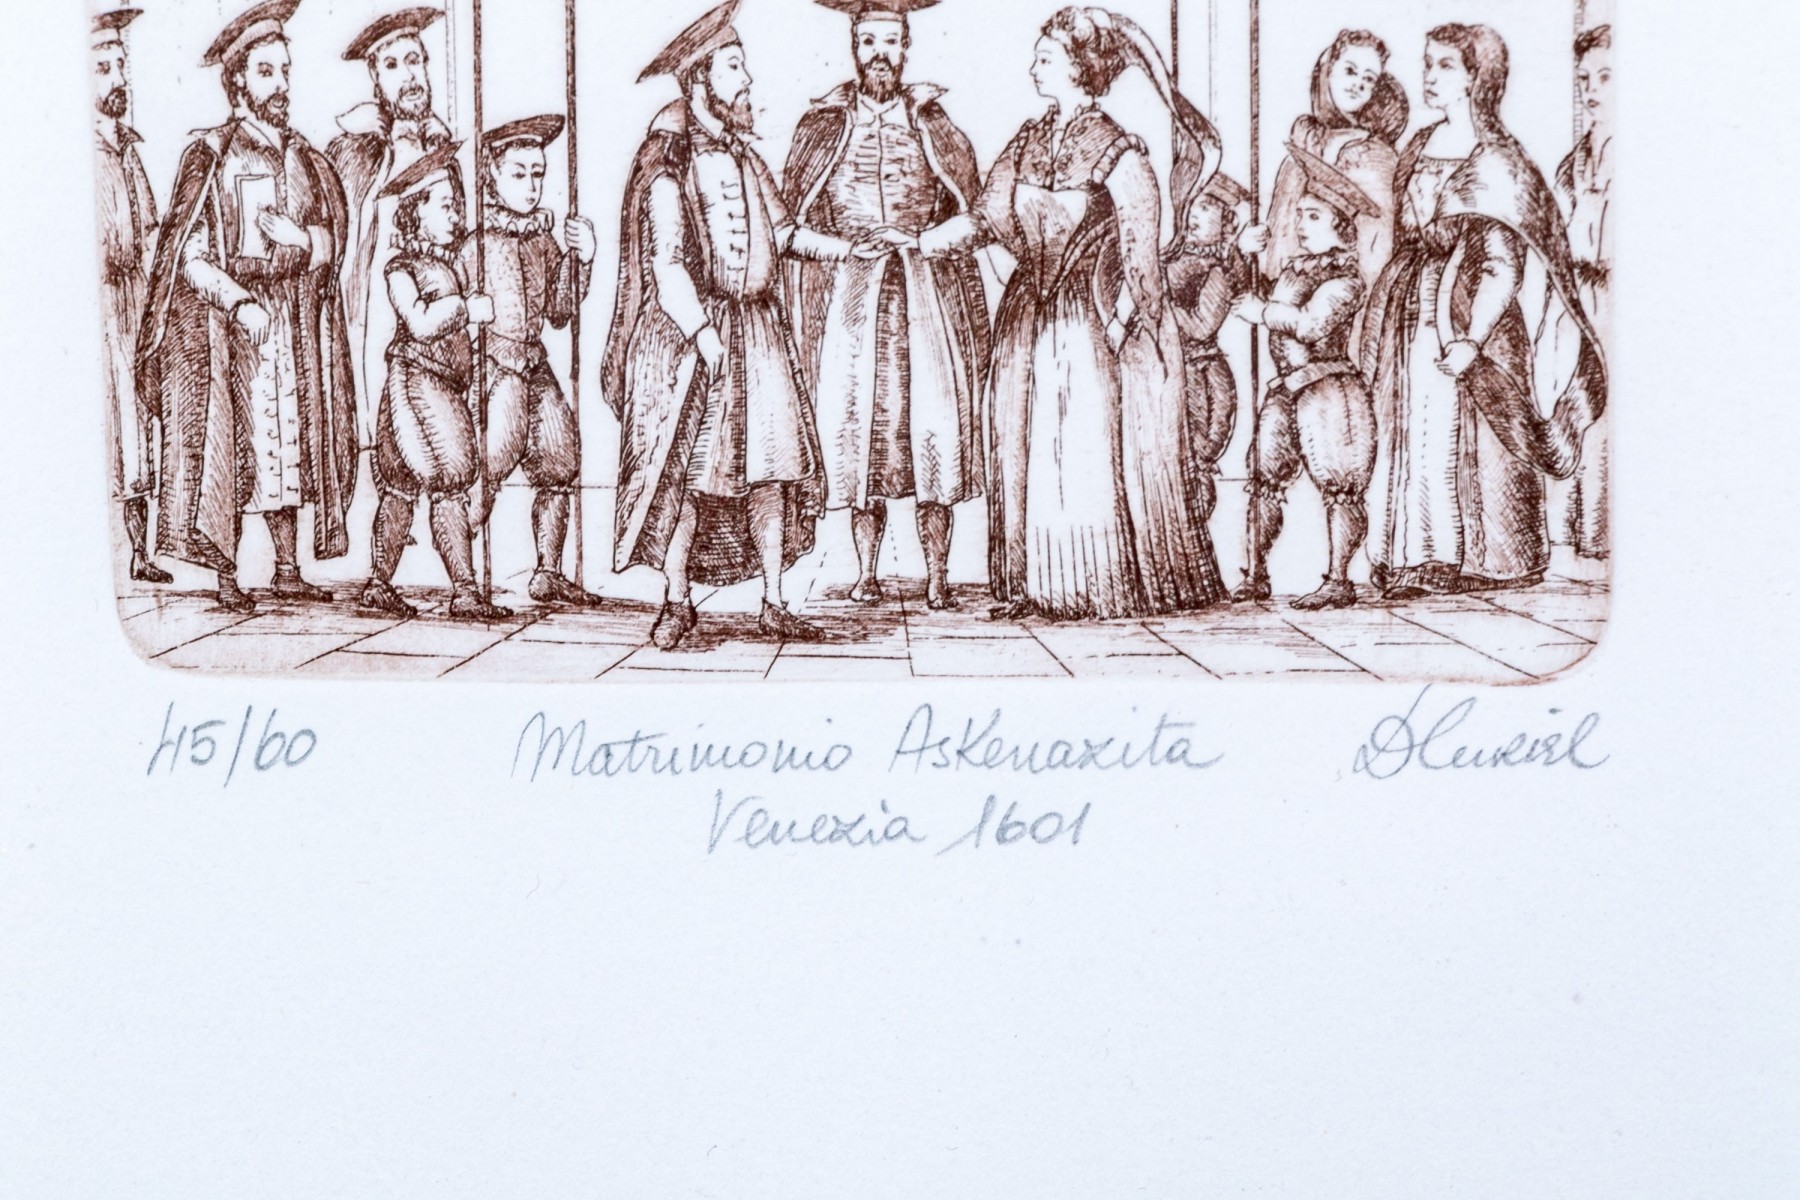 45/60 Matrimonio Askenazita
Venezia 1601